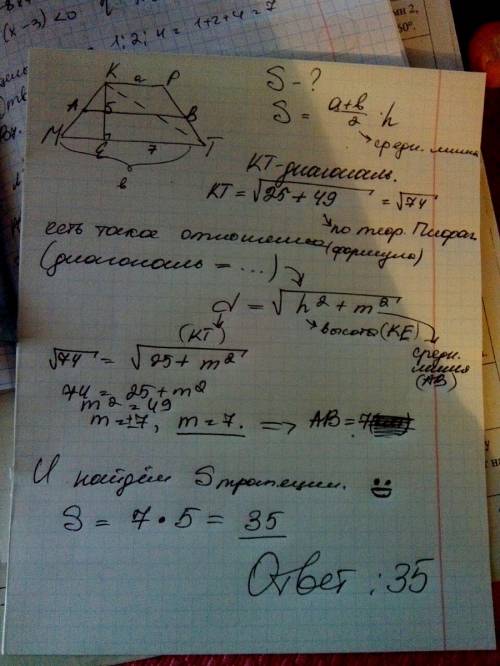 (x-3)<0
1; 2; 4 = 1+2+4 = 7
K a P
A 5 B
M E 7 T
в
S - ?
S = a+в/2 · h
средн. линия
KT - диагональ.
KT = √25 + 49 = √74
по теор. Пифаг.
есть такое отношение (формула)
(диагональ = ...)
d = √h² + m²
(KT)
высота (KE)
средн. линия (AB)
√74 = √25 + m²
74 = 25 + m²
m² = 49
m = ±7, m = 7. => AB = 7
И найдём Sтрапеции.
S = 7 • 5 = 35
Ответ: 35